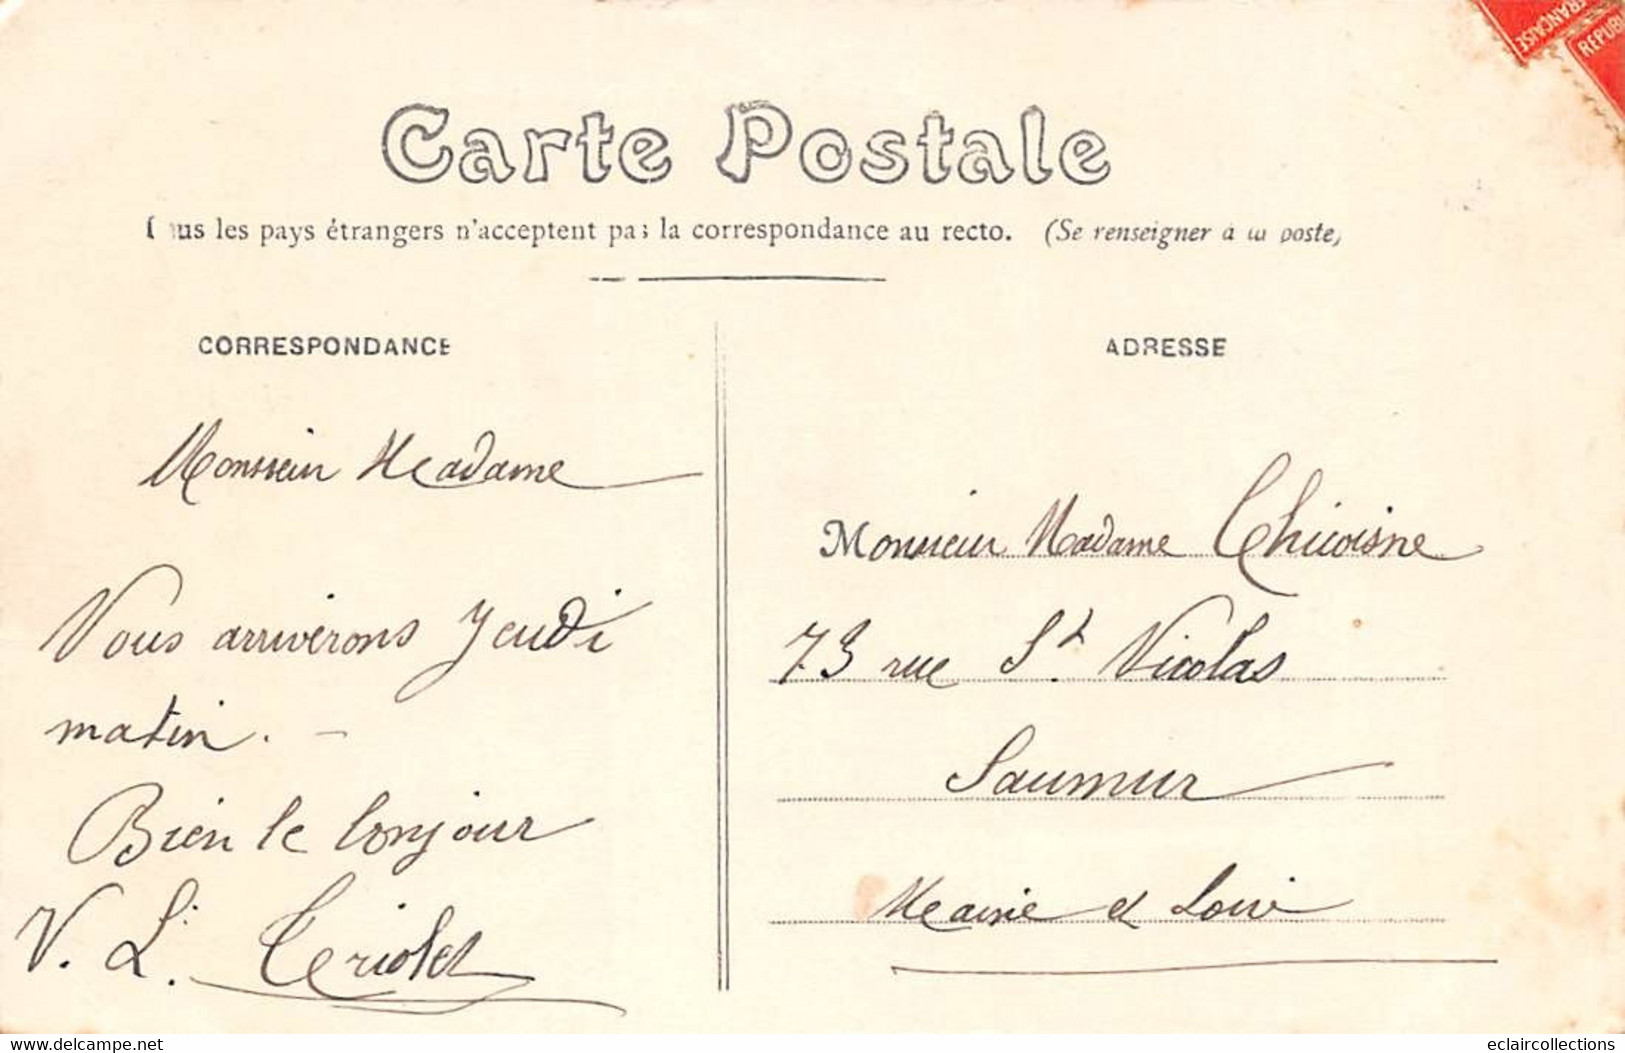 FRANÇAISE
Carte Postale
les pays étrangers n'acceptent pas la correspondance au recto. (Se renseigner à la poste)
CORRESPONDANCE
Monsieur Madame
Vous arriverons Jeudi
matin. –
Bien le bonjour
V. L. Teriolet
ADRESSE
Monsieur Madame Chicoisne
73 rue St. Nicolas
Saumur
Maine et Loire
© delcampe.net
eclaircollections